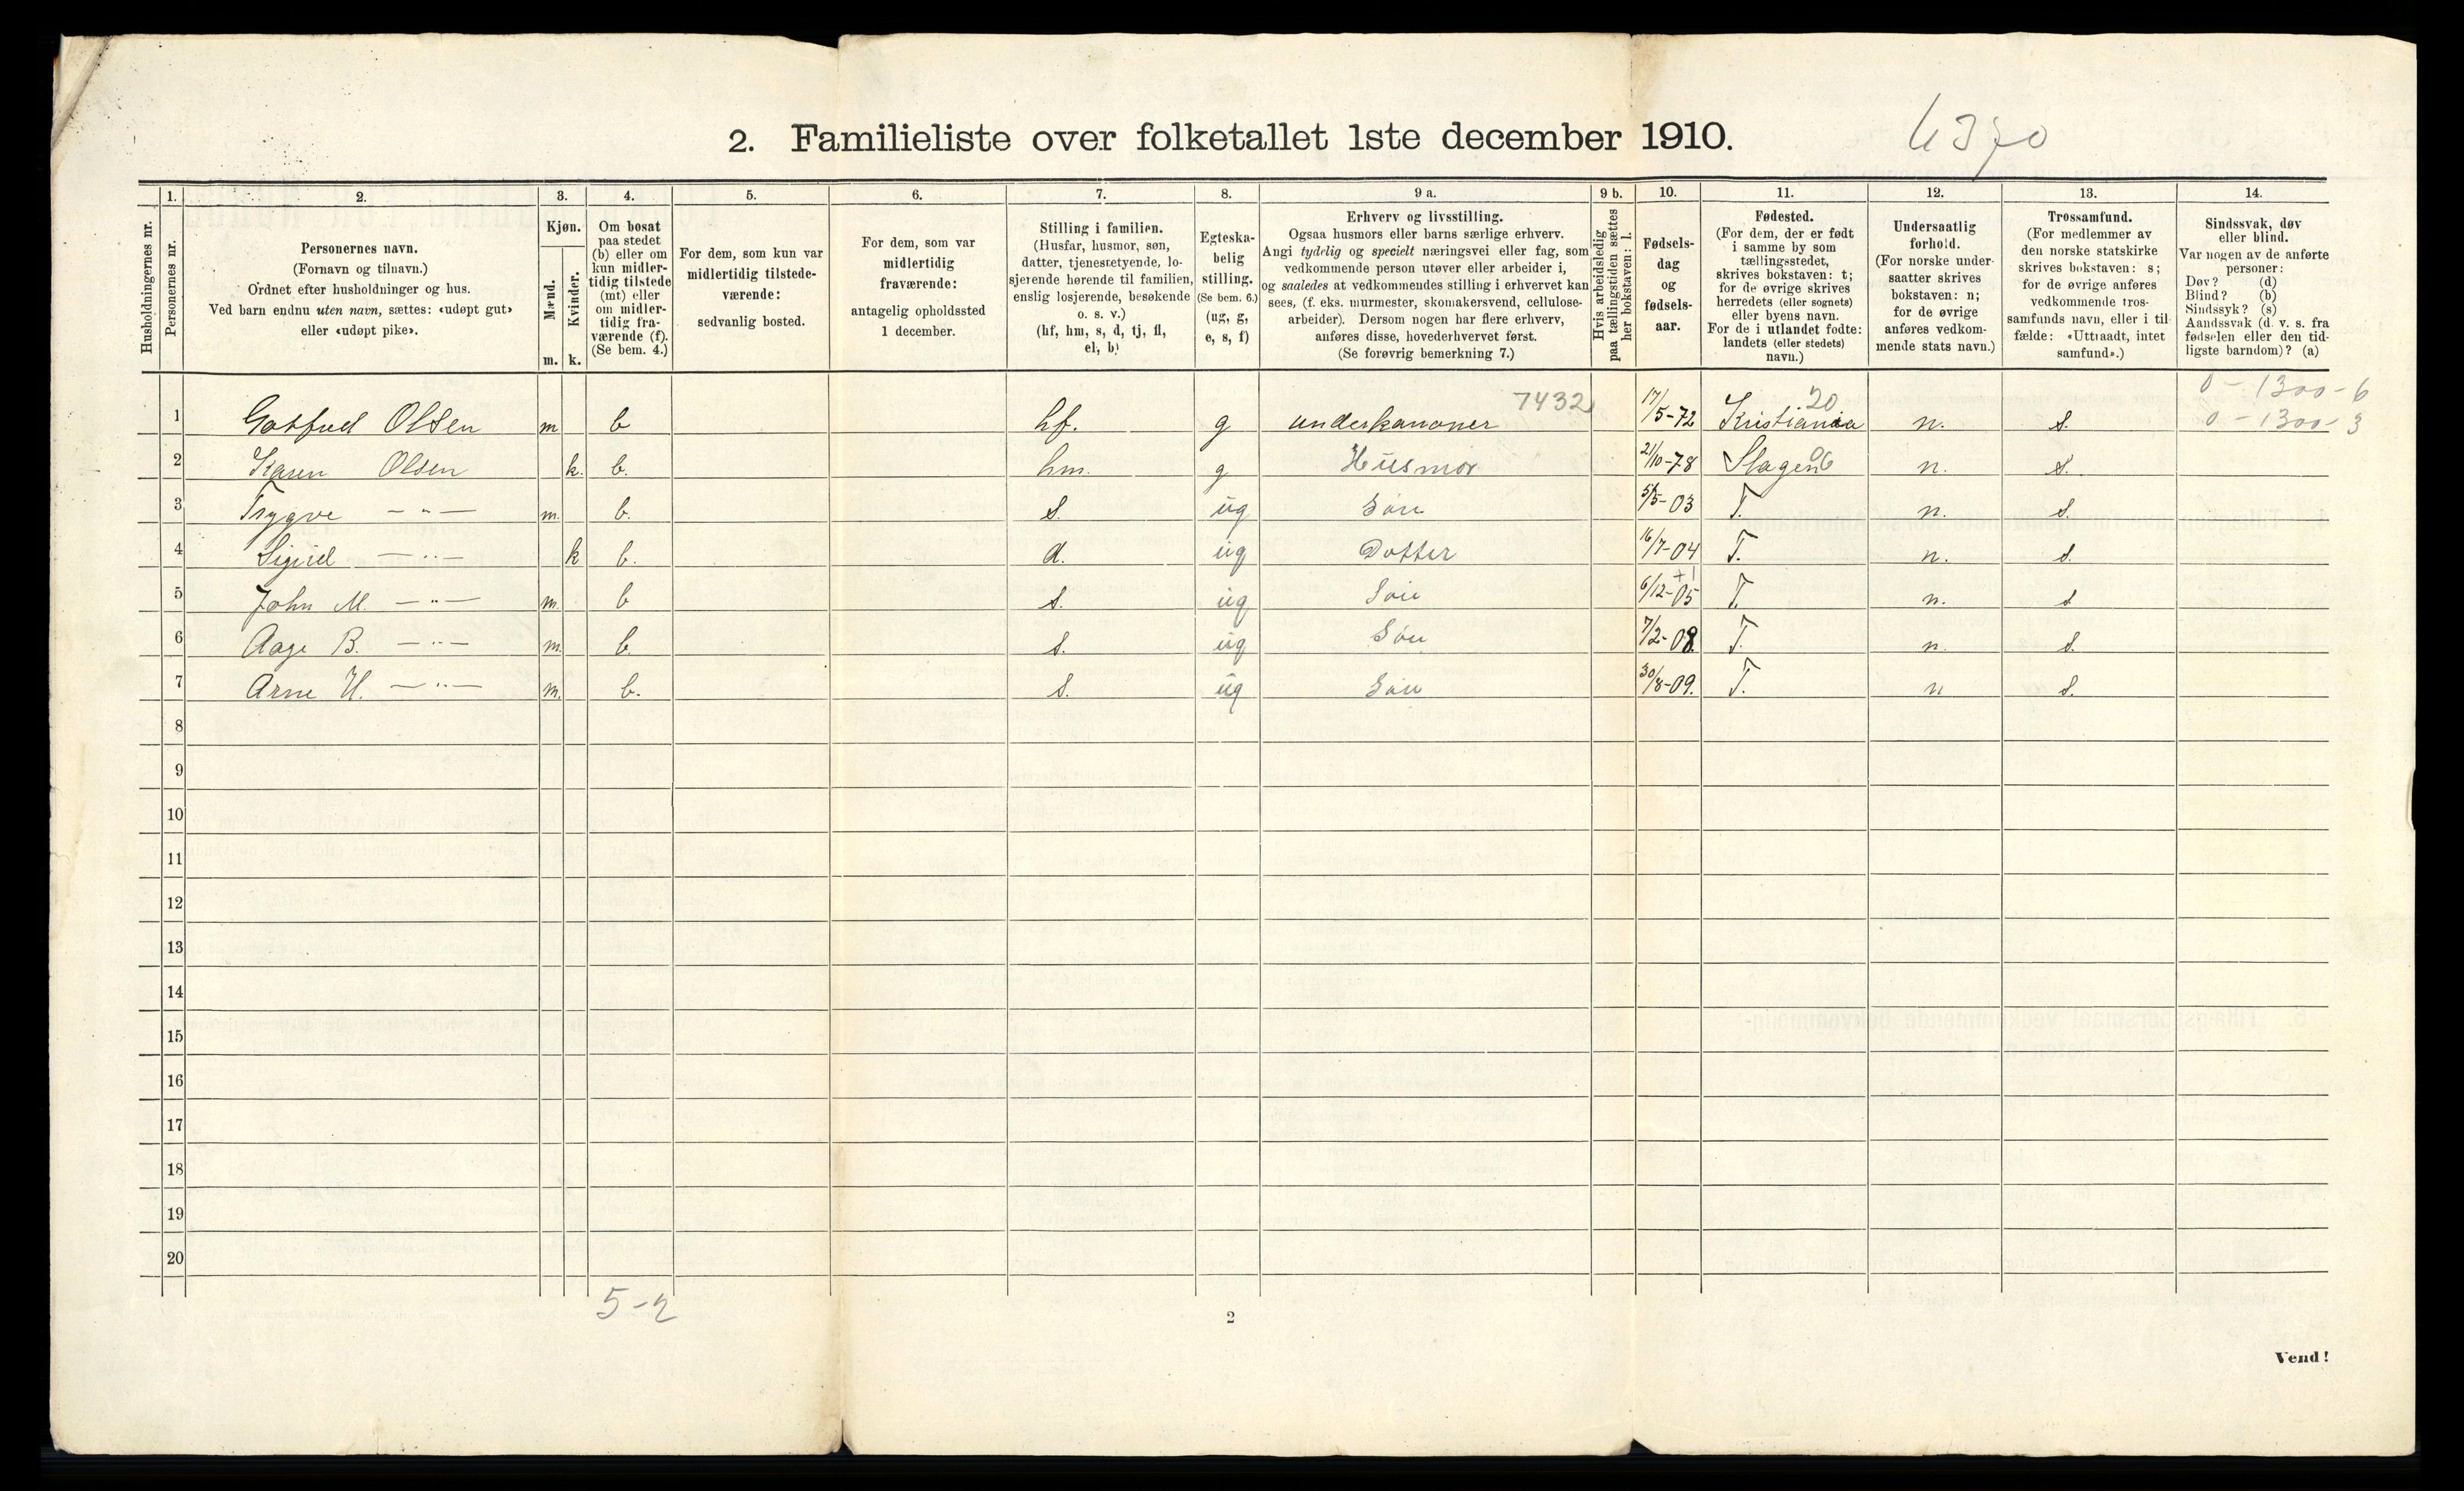 6370
2. Familieliste over folketallet 1ste december 1910.
1. 2. 3. 4. 5. 6. 7. 8. 9 a. 9 b. 10. 11. 12. 13. 14.
Husholdningernes nr.
Personernes nr.
Personernes navn.
(Fornavn og tilnavn.)
Ordnet efter husholdninger og hus.
Ved barn endnu uten navn, sættes: «udøpt gut»
eller «udøpt pike».
Kjøn.
Mænd.
m.
Kvinder.
k.
Om bosat
paa stedet
(b) eller om
kun midler-
tidig tilstede
(mt) eller
om midler-
tidig fra-
værende (f).
(Se bem. 4.)
For dem, som kun var
midlertidig tilstede-
værende:
sedvanlig bosted.
For dem, som var
midlertidig
fraværende:
antagelig opholdssted
1 december.
Stilling i familien.
(Husfar, husmor, søn,
datter, tjenestetyende, lo-
sjerende hørende til familien,
enslig losjerende, besøkende
o. s. v.)
(hf, hm, s, d, tj, fl,
el, b)
Egteska-
belig
stilling.
(Se bem. 6.)
(ug, g,
e, s, f)
Erhverv og livsstilling.
Ogsaa husmors eller barns særlige erhverv.
Angi tydelig og specielt næringsvei eller fag, som
vedkommende person utøver eller arbeider i,
og saaledes at vedkommendes stilling i erhvervet kan
sees, (f. eks. murmester, skomakersvend, cellulose-
arbeider). Dersom nogen har flere erhverv,
anføres disse, hovederhvervet først.
(Se forøvrig bemerkning 7.)
Hvis arbeidsledig
paa tællingstiden sættes
her bokstaven: l.
Fødsels-
dag
og
fødsels-
aar.
Fødested.
(For dem, der er født
i samme by som
tællingsstedet,
skrives bokstaven: t;
for de øvrige skrives
herredets (eller sognets)
eller byens navn.
For de i utlandet fødte:
landets (eller stedets)
navn.)
Undersaatlig
forhold.
(For norske under-
saatter skrives
bokstaven: n;
for de øvrige
anføres vedkom-
mende stats navn.)
Trossamfund.
(For medlemmer av
den norske statskirke
skrives bokstaven: s;
for de øvrige anføres
vedkommende tros-
samfunds navn, eller i til-
fælde: «Uttraadt, intet
samfund».)
Sindssvak, døv
eller blind.
Var nogen av de anførte
personer:
Døv? (d)
Blind? (b)
Sindssyk? (s)
Aandssvak (d. v. s. fra
fødselen eller den tid-
ligste barndom)? (a)
0 - 1300 - 6
1 Gotfred Olsen m b hf. g underkanoner 7432 17/5-72 Kristiania 20 n. s. 0 - 1300 - 3
2 Karen Olsen k. b. hm. g Husmor 21/10-78 Slagen 06 n. s.
3 Trygve — " — m. b. s. ug Søn 5/5-03 T. n. s.
4 Sigrid — " — k b. d. ug Dotter 16/7-04 T. n. s.
5 John M. — " — m. b s. ug Søn 6/12-05 +1 T. n. s
6 Aage B. — " — m. b. s. ug Søn 7/2-08 T. n. s.
7 Arne H. — " — m. b. s. ug Søn 30/8-09. T. n s.
8
9
10
11
12
13
14
15
16
17
18
19
20
5-2
2
Vend!